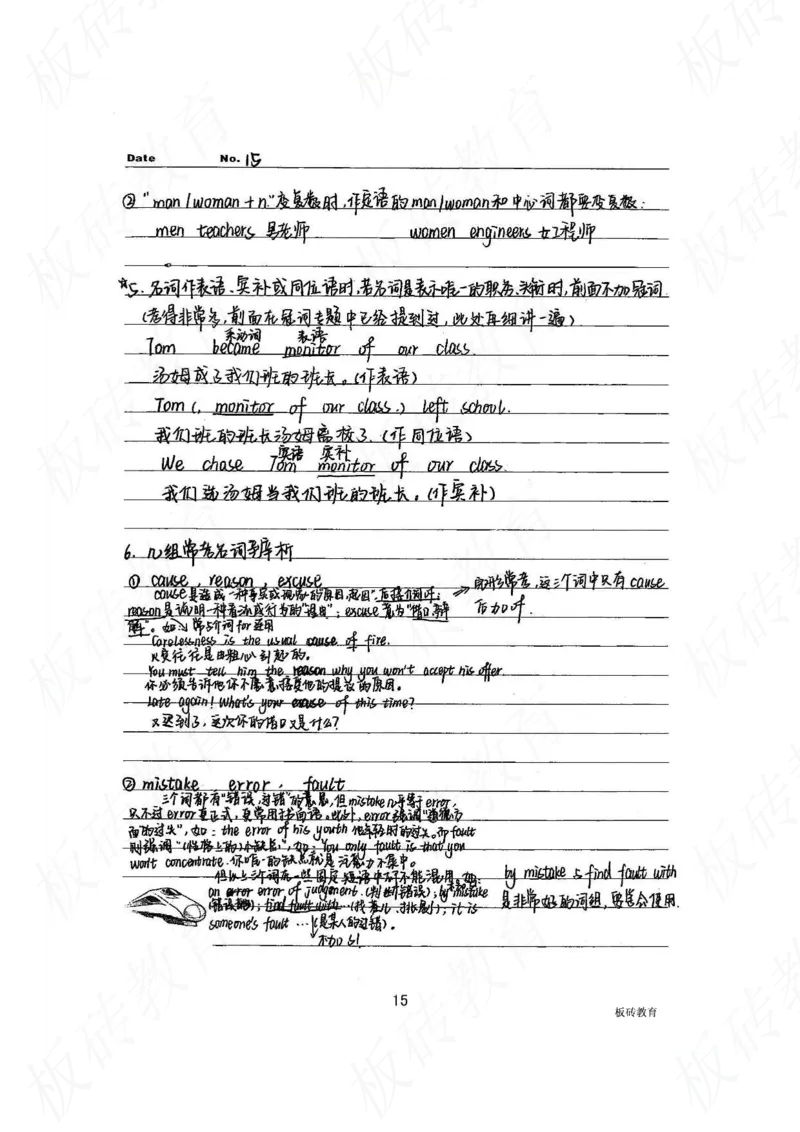 Date No. 15
② "man/woman + n."变复数时,作定语的man/woman和中心词都要变复数:
men teachers 男老师 women engineers 女工程师
*5. 名词作表语、宾补或同位语时,若名词是表示唯一的职务、头衔时,前面不加冠词
(考得非常多,前面在冠词专题中已经提到过,此处再细讲一遍)
系动词 表语
Tom became monitor of our class.
汤姆成了我们班的班长。(作表语)
Tom (, monitor of our class,) left school.
我们班的班长汤姆离校了。(作同位语)
宾语 宾补
We chose Tom monitor of our class.
我们选汤姆当我们班的班长。(作宾补)
6. 几组常考名词辨析
① cause, reason, excuse
cause是造成一种事实或现象的原因,起因",后接介词of; => 即形常考,这三个词中只有cause
reason是说明一种看法或行为的"理由"; excuse意为"借口,辩 后加of.
解"。 常与介词for连用
Carelessness is the usual cause of fire.
火灾往往是由粗心引起的。
You must tell him the reason why you won't accept his offer.
你必须告诉他你不愿意接受他的提议的原因。
Late again! What's your excuse of this time?
又迟到了,这次你的借口又是什么?
② mistake error, fault
三个词都有"错误,过错"的意思,但mistake几乎等于error,
只不过error更正式,更常用于书面语。此外,error强调"道德方
面的过失",如: the error of his youth 他年轻时的过失。而fault
则强调"(性格上的)小缺点",如: You only fault is that you
won't concentrate. 你唯一的缺点就是注意力不集中。
但以上三个词在一些固定短语中不能混用。如: by mistake 与 find fault with
an error error of judgment. (判断错误); by mistake 是非常好的词组,要学会使用.
(错误地); find fault with...(找茬儿,挑剔); it is
someone's fault ...(是某人的过错)。
不加s!
15
板砖教育